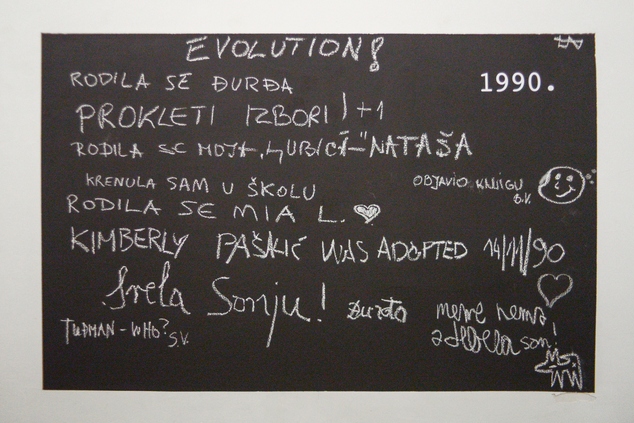 EVOLUTION!
1990.
RODILA SE ĐURĐA
PROKLETI IZBORI! +1
RODILA SE MOJA LJUBICA - NATAŠA
KRENULA SAM U ŠKOLU
OBJAVIO KNJIGU
B.V.
RODILA SE MIA L.
KIMBERLY PAŠKIĆ WAS ADOPTED 14/11/90
Srela Sonju!
Đurđa
mene nema!
TUĐMAN - WHO? S.V.
a debela sam!